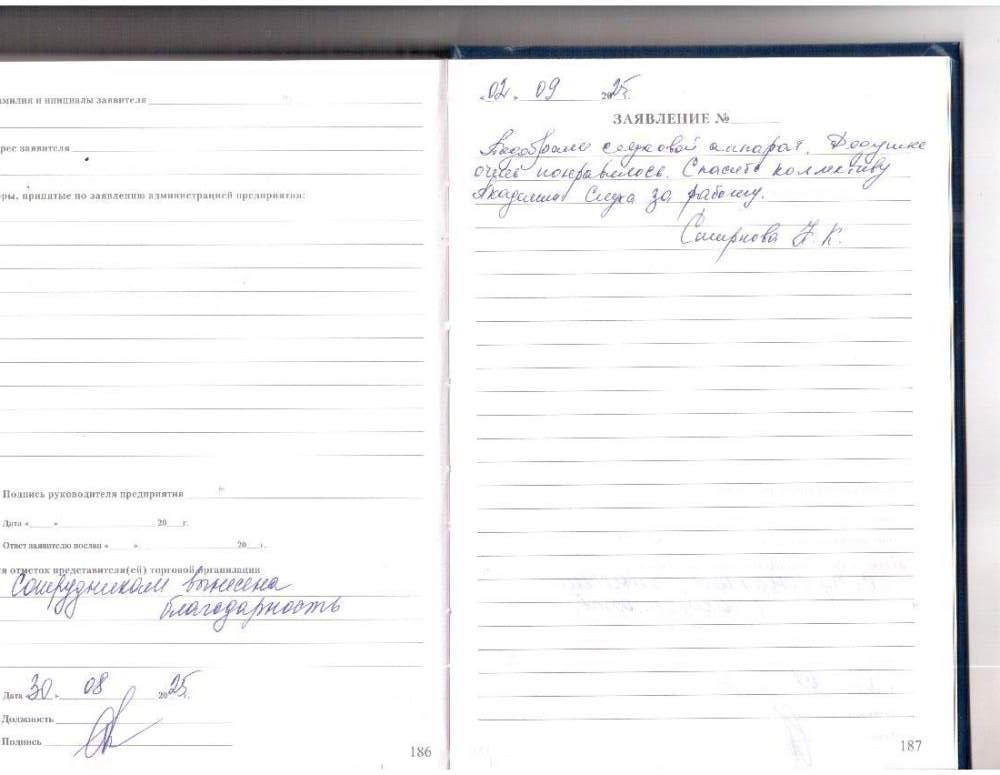 амилия и инициалы заявителя
рес заявителя
ры, принятые по заявлению администрацией предприятия:
Подпись руководителя предприятия
Дата «    »    20    г.
Ответ заявителю послан «    »    20    г.
я отметок представителя(ей) торговой организации
Сотрудникам вынесена
благодарность
Дата «30» 08 2025г.
Должность
Подпись
186
«02» 09 2025г.
ЗАЯВЛЕНИЕ №
Подобрали слуховой аппарат. Дедушке
очень понравилось. Спасибо коллективу
Академии Слуха за работу.
Смирнова Н. К.
187